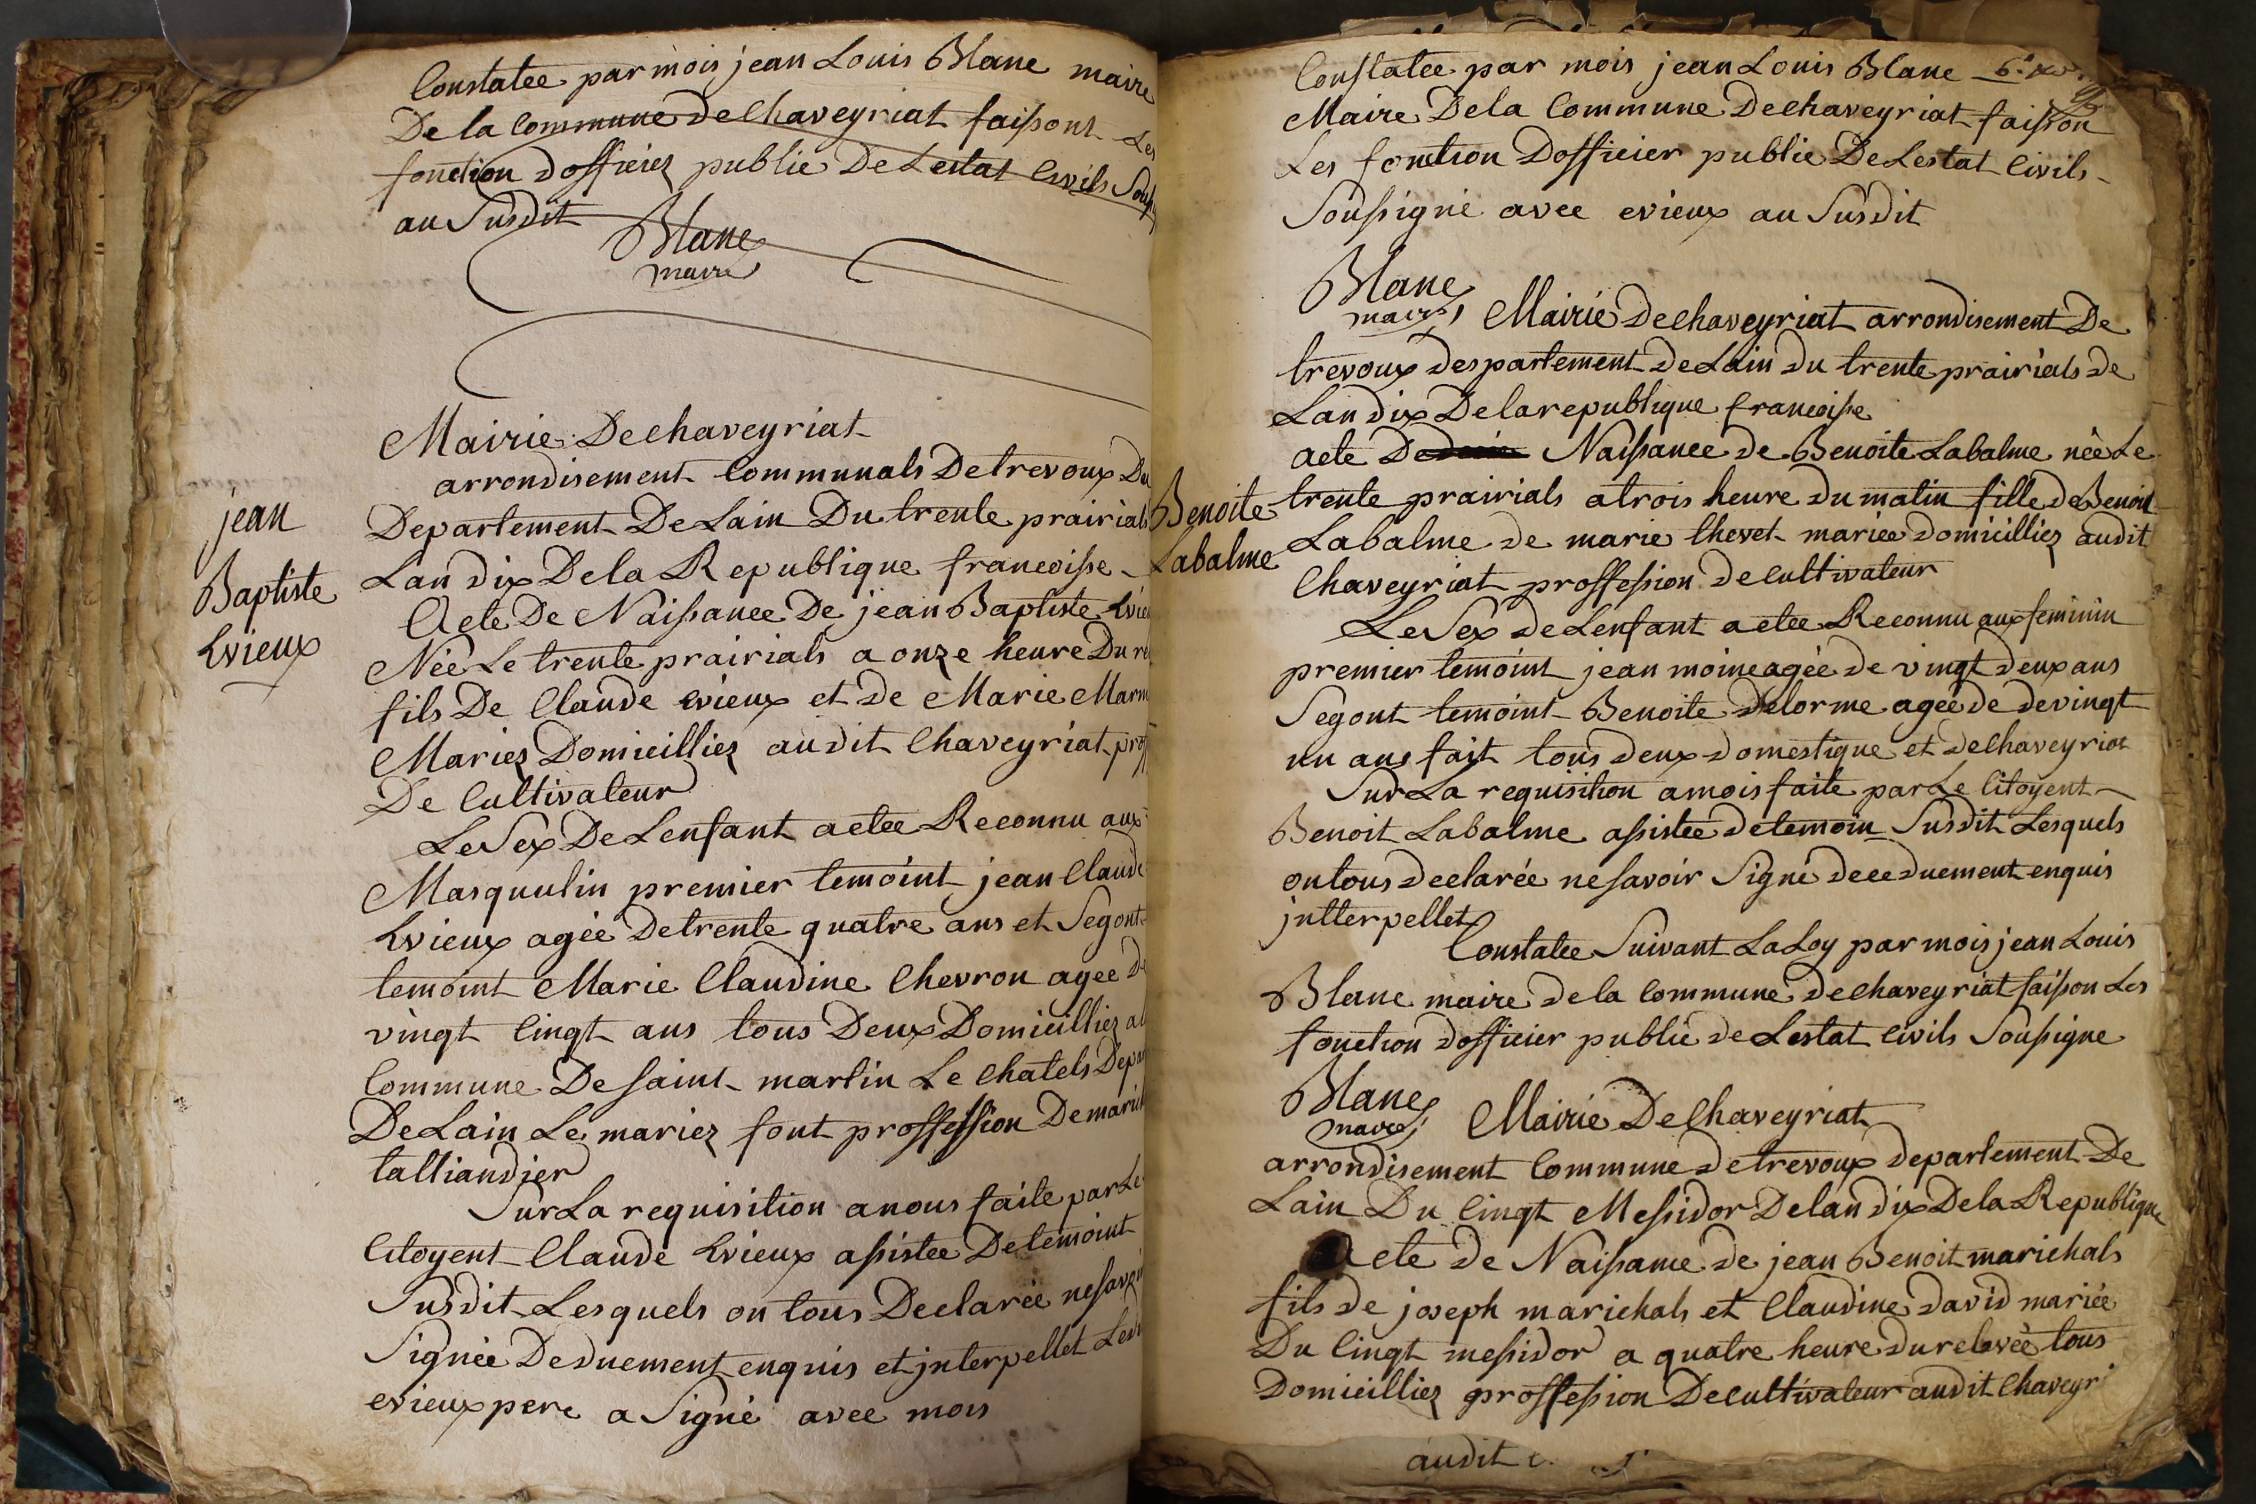 Constatee par mois jean Louis Blanc maire
De la Commune De Chaveyriat faissont Les
fonction Dofficiez public De Lestat Civils
au Susdit
Blanc
maire
Mairie De Chaveyriat
arrondisement Communals De trevoux Du
Departement De Lain Du trente prairials
Lan dix De la Republique francoisse
jean
Baptiste
Evieux
Acte De Naissance De jean Baptiste
Née Le trente prairials a onze heure Du
fils De Claude evieux et de Marie
Mariez Domicilliez audit Chaveyriat
De Cultivateur
Le Sex De Lenfant a etee Reconnu aux
Masquulin premier temoint jean Claude
Evieux agée De trente quatre ans et Segont
temoint Marie Claudine Chevron agee De
vingt Cingt ans tous Deux Domicilliez
Commune De saint martin Le Chatels
De Lain Le mariez font proffession De
talliandier
Sur La requisition a nous faite par Le
Citoyent Claude Evieux assistee De temoint
Susdit Lesquels on tous Declarée ne savoir
Signée De duement enquis et jnterpellet
evieux pere a Signé avec mois
Constatee par mois jean Louis Blanc
Maire De la Commune De Chaveyriat faisson
Les fonction Dofficier public De Lestat Civils
Soussigné avec evieux au Susdit
Blanc
maire
Mairie De Chaveyriat arrondisement De
trevoux despartement de Lain du trente prairials de
Lan dix De la republique francoisse
acte De Naissance de Benoite Labalme née Le
Benoite
Labalme
trente prairials a trois heure du matin fille de Benoit
Labalme de marie Chevet mariee domicilliez audit
Chaveyriat proffession de Cultivateur
Le Sex de Lenfant a etee Reconnu aux feminin
premier temoint jean moine agée de vingt deux ans
Segont temoint Benoite Delorme agée de de vingt
un ans fait tous deux domestique et de Chaveyriat
Sur La requisition a mois faite par Le Citoyent
Benoit Labalme assistee de temoin Susdit Lesquels
on tous declarée ne savoir Signé de ce duement enquis
jntterpellet
Constatee Suivant La Loy par mois jean Louis
Blanc maire de la Commune de Chaveyriat faisson Les
fonction dofficier public de Lestat Civils Soussigne
Blanc
maire
Mairie De Chaveyriat
arrondisement Commune de trevoux departement De
Lain Du Cingt Messidor De lan dix De la Republique
Acte de Naissance de jean Benoit marichals
fils de joseph marichals et Claudine david mariée
Du Cingt messidor a quatre heure du relevée tous
Domicilliez proffession De cultivateur audit
audit